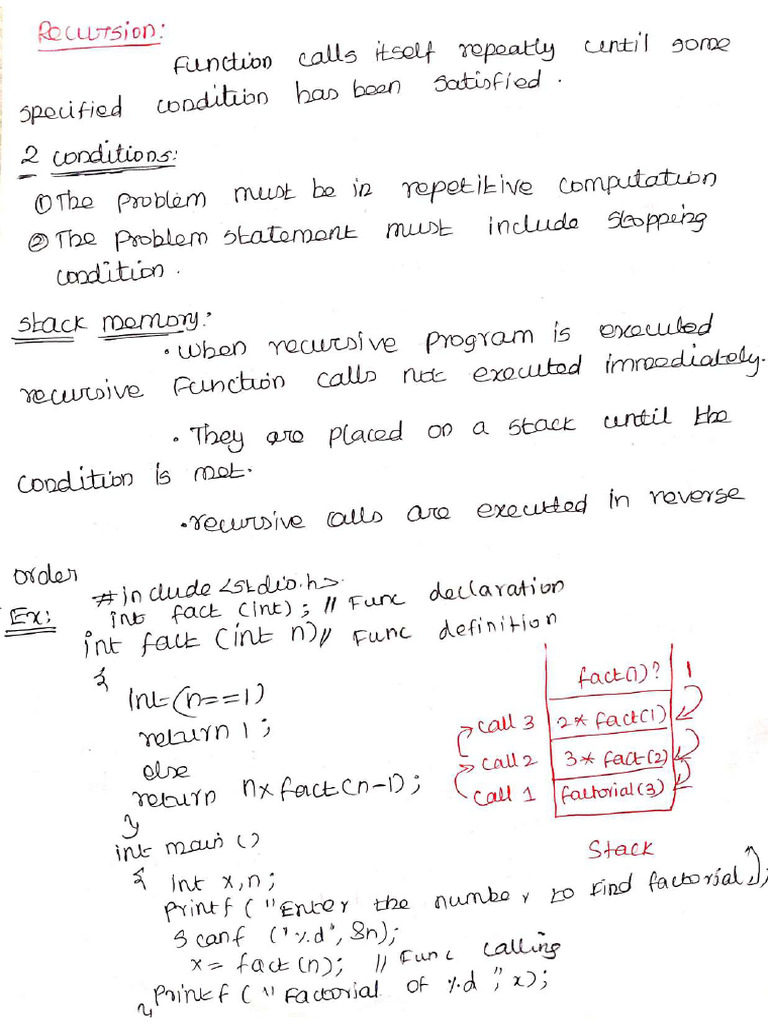 Recursion:
Function calls itself repeatly until some
specified condition has been satisfied.
2 conditions:
① The problem must be in repetitive computation
② The problem statement must include stopping
condition.
stack memory:
• when recursive program is executed
recursive function calls not executed immediately.
• They are placed on a stack until the
condition is met.
• recursive calls are executed in reverse
order
#include <stdio.h>
Ex: int fact (int); // Func declaration
int fact (int n) // Func definition
{
int (n==1)
return 1;
else
return n x fact (n-1);
}
fact(1)? 1
call 3 2* fact(1)
call 2 3* fact(2)
call 1 factorial(3)
Stack
int main ()
{ int x,n;
printf ("Enter the number, to find factorial");
scanf ("%d", &n);
x = fact (n); // Func calling
printf ("Factorial of %d", x);
}